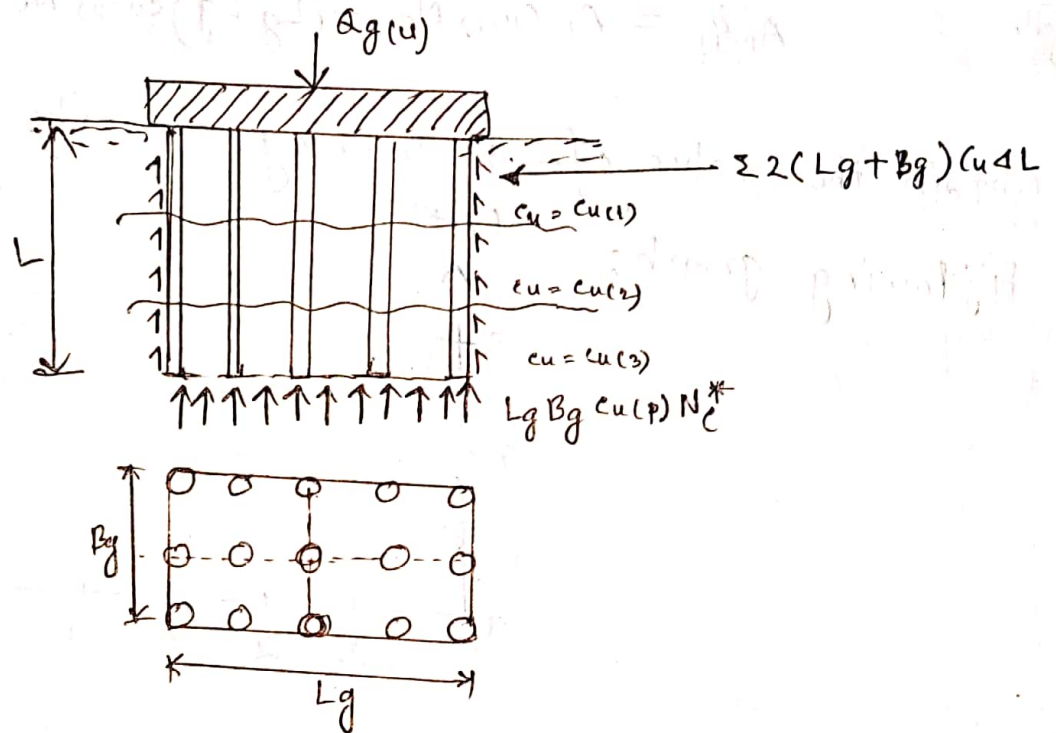 Qg(u)
Σ2(Lg+Bg)Cu ΔL
Cu = Cu(1)
L
Cu = Cu(2)
Cu = Cu(3)
Lg Bg Cu(p) Nc*
Bg
Lg